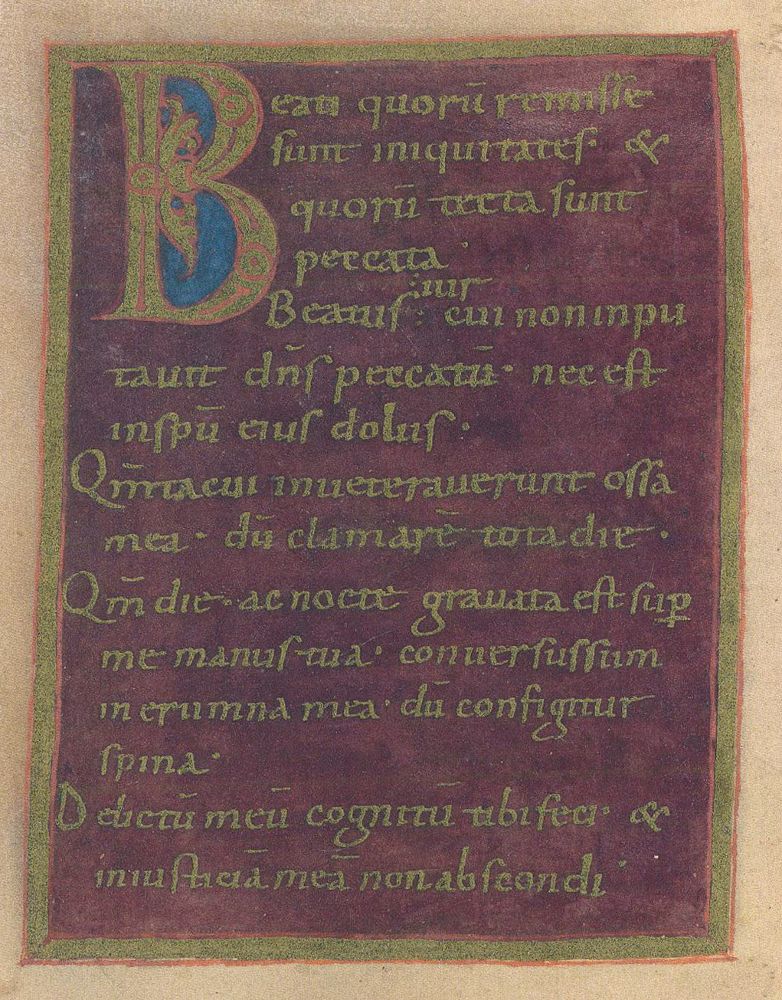 Beati quorū remisse
sunt iniquitates· &
quorū tecta sunt
peccata·
Beatus uir cui non inpu
tauit dn̄s peccatū· nec est
in spū eius dolus·
Qm̄ tacui inueterauerunt ossa
mea· dū clamarē tota die·
Qm̄ die· ac nocte grauata est sup̄
me manus tua· conuersus sum
in erumna mea· dū configitur
spina·
Delictū meū cognitū tibi feci· &
iniusticiā meā non abscondi·